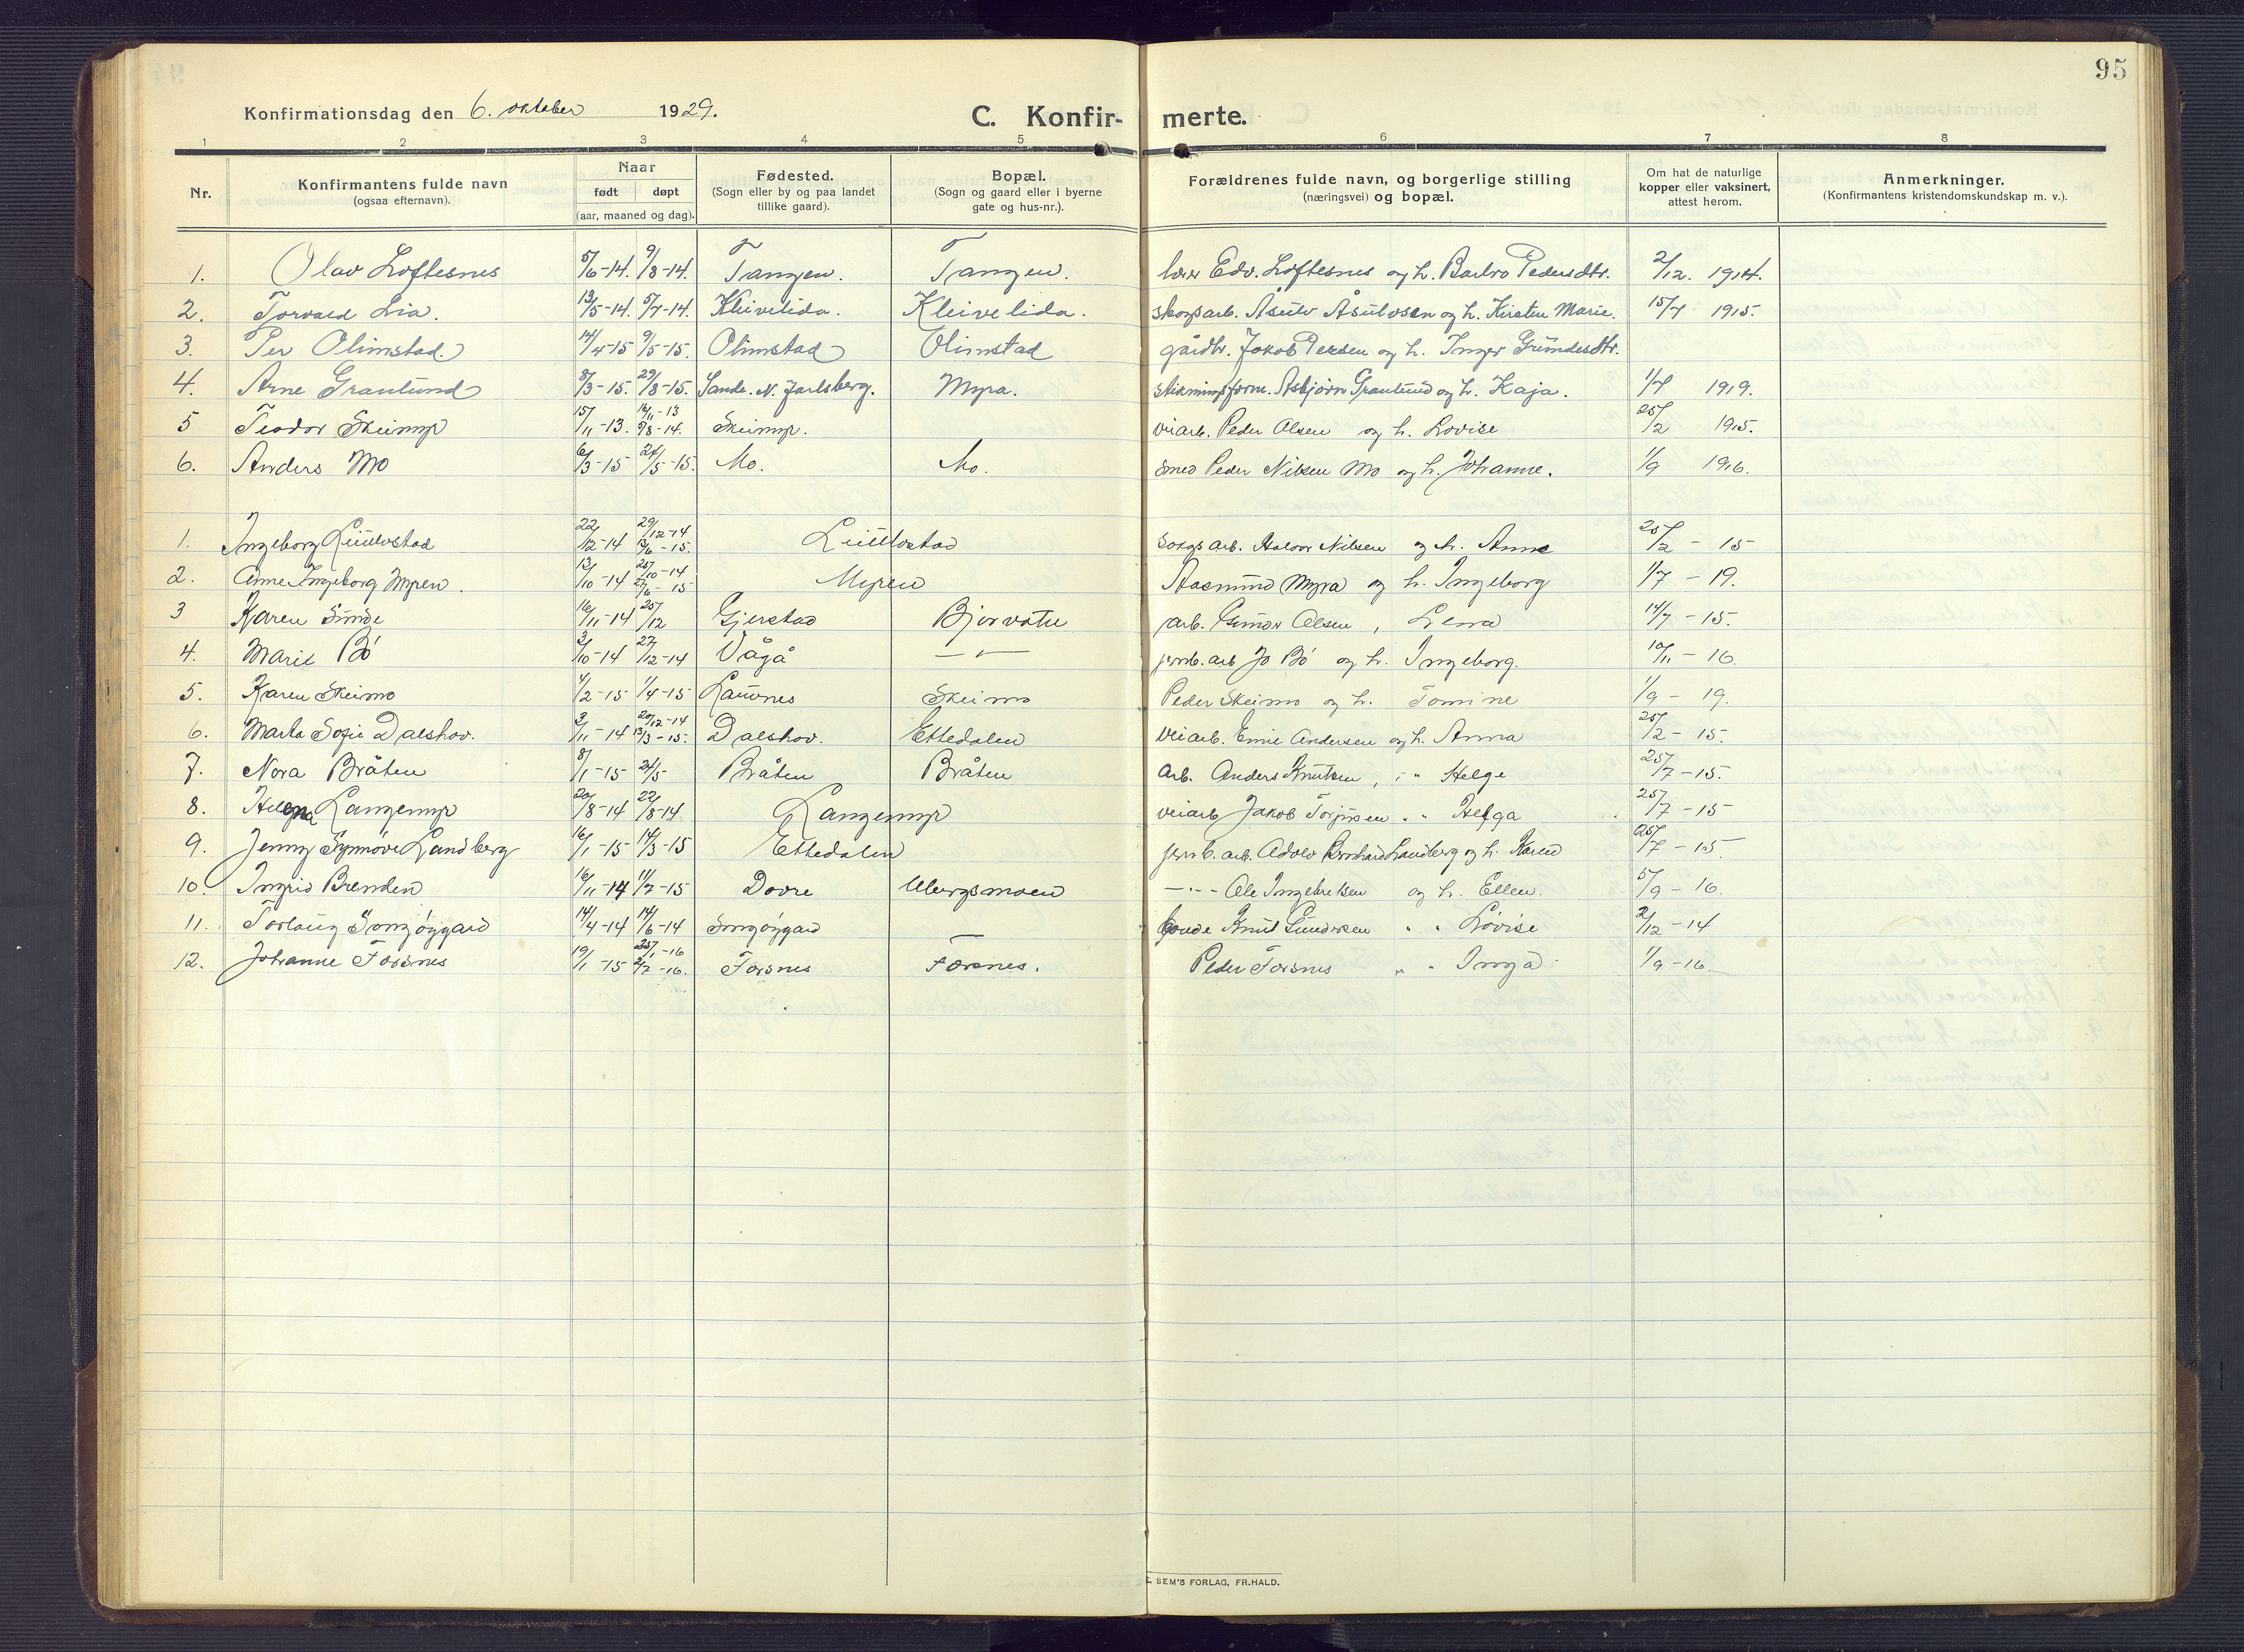 95
Konfirmationsdag den 6. oktober 1929.
C. Konfir- merte.
1 2 3 4 5 6 7 8
Nr.
Konfirmantens fulde navn
(ogsaa efternavn).
Naar
født døpt
(aar, maaned og dag).
Fødested.
(Sogn eller by og paa landet
tillike gaard).
Bopæl.
(Sogn og gaard eller i byerne
gate og hus-nr.).
Forældrenes fulde navn, og borgerlige stilling
(næringsvei) og bopæl.
Om hat de naturlige
kopper eller vaksinert,
attest herom.
Anmerkninger.
(Konfirmantens kristendomskundskap m. v.).
1. Olav Loftesnes 5/6-14. 9/8-14. Tangen. Tangen. lærer Edv. Loftesnes og h. Barbro Pedersdtr. 2/12. 1914.
2. Torvald Lia. 13/5-14. 5/7-14. Kleivelida. Kleivelida. skogsarb. Åsulv Åsulvsen og h. Kirsten Marie. 15/7 1915.
3. Per Olimstad. 14/4-15 9/5-15. Olimstad Olimstad gårdbr. Jakob Persen og h. Inger Gundesdtr.
4. Arne Granlund 8/3-15. 29/8-15. Sande. N. Jarlsberg. Myra. stikningsform. Asbjørn Granlund og h. Kaja. 1/7 1919.
5 Teodor Skeimyr 15/11-13. 16/11-13 9/8-14. Skeimyr. veiarb. Peder Olsen og h. Lovise 25/2 1915.
6. Anders Mo 6/3-15 24/5-15. Mo. Mo. smed Peder Nilsen Mo og h. Johanne. 1/9 1916.
1. Ingeborg Lundstad 22/12-14 29/12-14 13/6-15. Lundstad Halvor Nilsen og h. Anne 25/2 - 15
2. Anne Ingeborg Myren. 13/10-14 25/10-14 27/6-15 Myren Aasmund Myra og h. Ingeborg 1/7 - 19.
3 Karen Sunde 16/11-14 25/12 Gjerstad Bjorvatn arb. Gunder Olsen, Lena 14/7 - 15.
4. Marie Bö 3/10-14 27/12-14 Vågå — " — jernb. arb Jo Bö og h. Ingeborg. 10/11 - 16.
5. Karen Skeimo 4/2-15 1/4-15 Skeimo Peder Skeimo og h. Tomine 1/9 - 19.
6. Marta Sofie Dalskov. 3/11-14 20/12-14 13/3-15. Dalskov. Ettedalen veiarb. Emil Andersen og h. Anna 25/2 - 15.
7. Nora Bråten 8/1-15 24/5 Bråten Bråten arb. Anders Knutsen, " Helge 25/7 - 15.
8. Helga Langemyr 20/8-14 22/8-14 Langemyr veiarb Jakob Torjusen " " Helga 25/7 - 15
9. Jenny Synnøve Landberg 16/1-15 14/3-15 Ettedalen jernb. arb. Adolv Bernhard Landberg og h. Karen 25/7 - 15.
10. Ingrid Brenden 16/11-14 11/7-15 Dovre Ubergsmoen — " — Ole Ingebretsen og h. Ellen. 5/9 - 16.
11. Torlaug Songöygard 14/4-14 14/6-14 Songöygard — bonde Knut Gundersen " " Lovise 2/12 - 14
12. Johanne Forsnes 19/1-15 25/1-16 2/7-16. Forsnes Forsnes. Peder Forsnes " " Inga 1/9 - 16.
E. SEM'S FORLAG, FR.HALD.